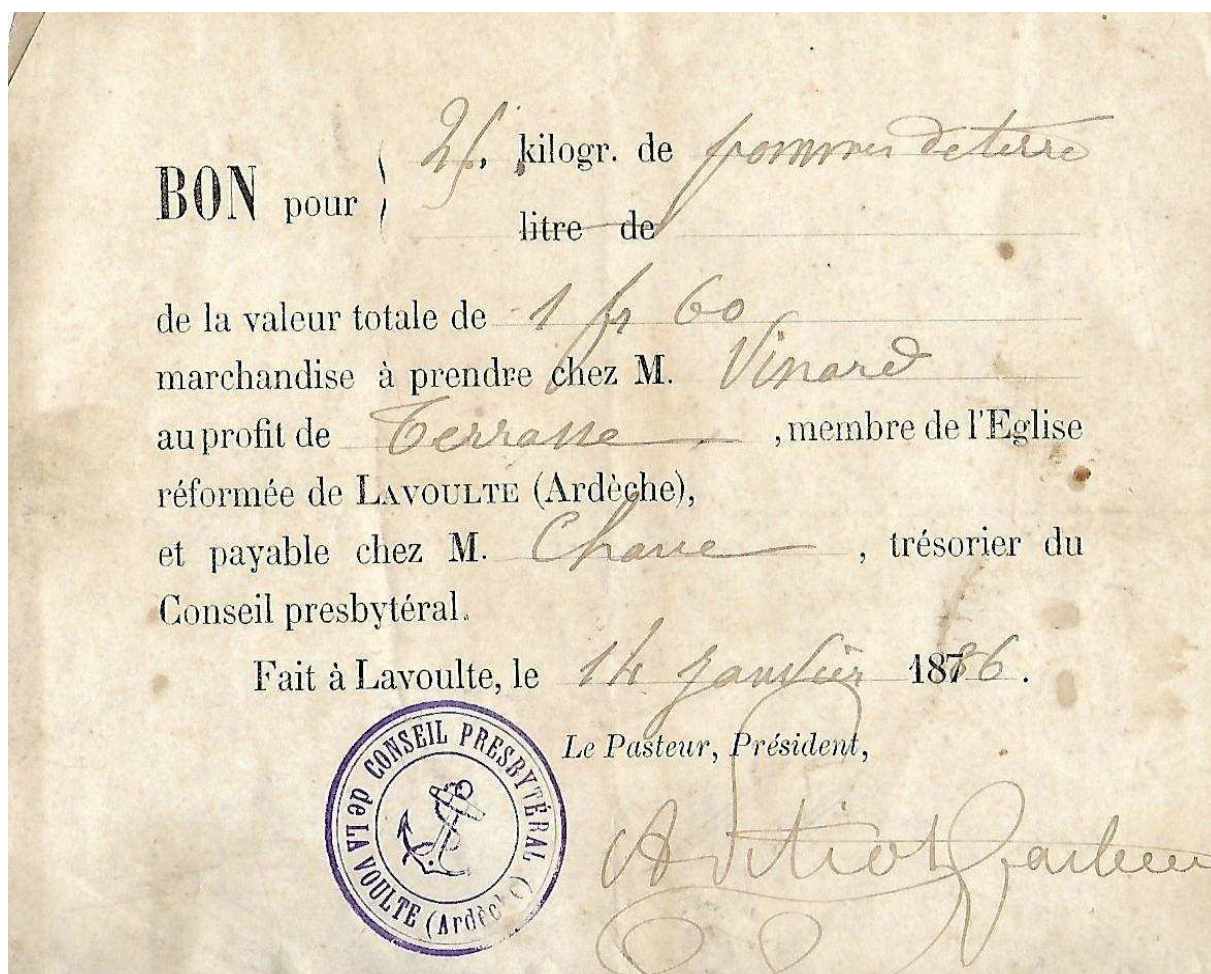 BON pour
25. kilogr. de pommes de terre
litre de
de la valeur totale de 1 fr 60
marchandise à prendre chez M. Vinard
au profit de Terrasse, membre de l'Eglise
réformée de LAVOULTE (Ardèche),
et payable chez M. Chave, trésorier du
Conseil presbytéral.
Fait à Lavoulte, le 14 janvier 1886.
Le Pasteur, Président,
CONSEIL PRESBYTÉRAL
de LA VOULTE (Ardèche)